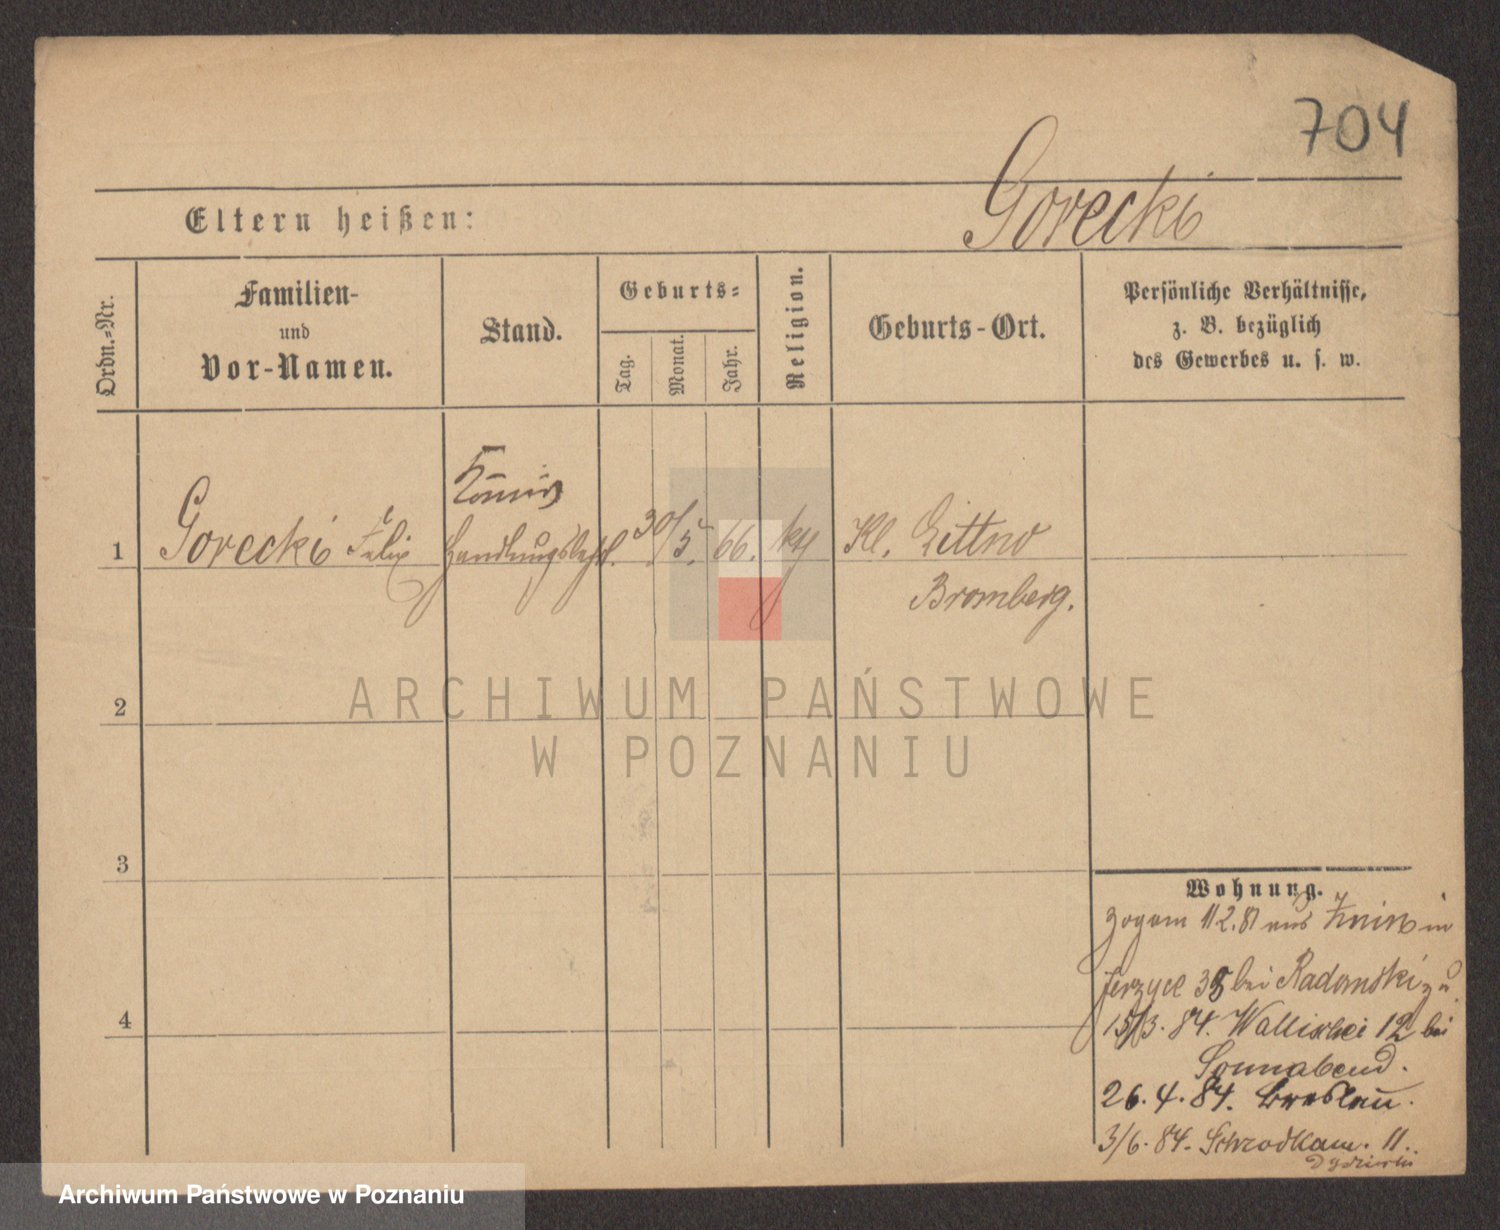 704
Gorecki
Eltern heißen:
Ordn.-Nr.
Familien-
und
Vor-Namen.
Stand.
Geburts-
Tag.
Monat.
Jahr.
Religion.
Geburts-Ort.
Persönliche Verhältnisse,
z. B. bezüglich
des Gewerbes u. s. w.
1
Gorecki Felix
Commis
30/5. 66.
Kl.
Bromberg.
2
3
4
Wohnung.
11 2. 81 aus Znin in
Jerzyce 35 bei Radomski
15/3. 84. Wallischei 12 bei
Sonnabend.
26.4.84. Breslau.
3/6.84. Schrodkam. 11.
ARCHIWUM PAŃSTWOWE
W POZNANIU
Archiwum Państwowe w Poznaniu